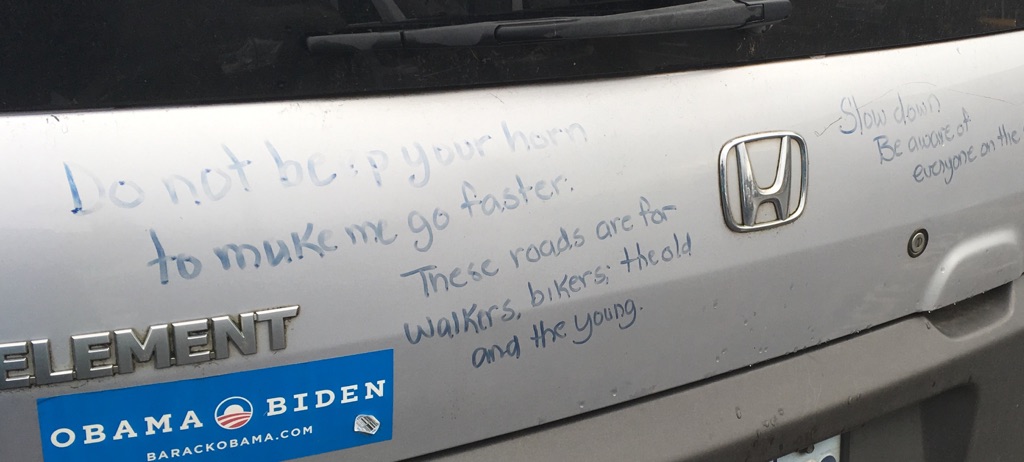 Do not beep your horn
to make me go faster.
These roads are for
walkers, bikers, the old
and the young.
Slow down
Be aware of
everyone on the
ELEMENT
OBAMA BIDEN
BARACKOBAMA.COM